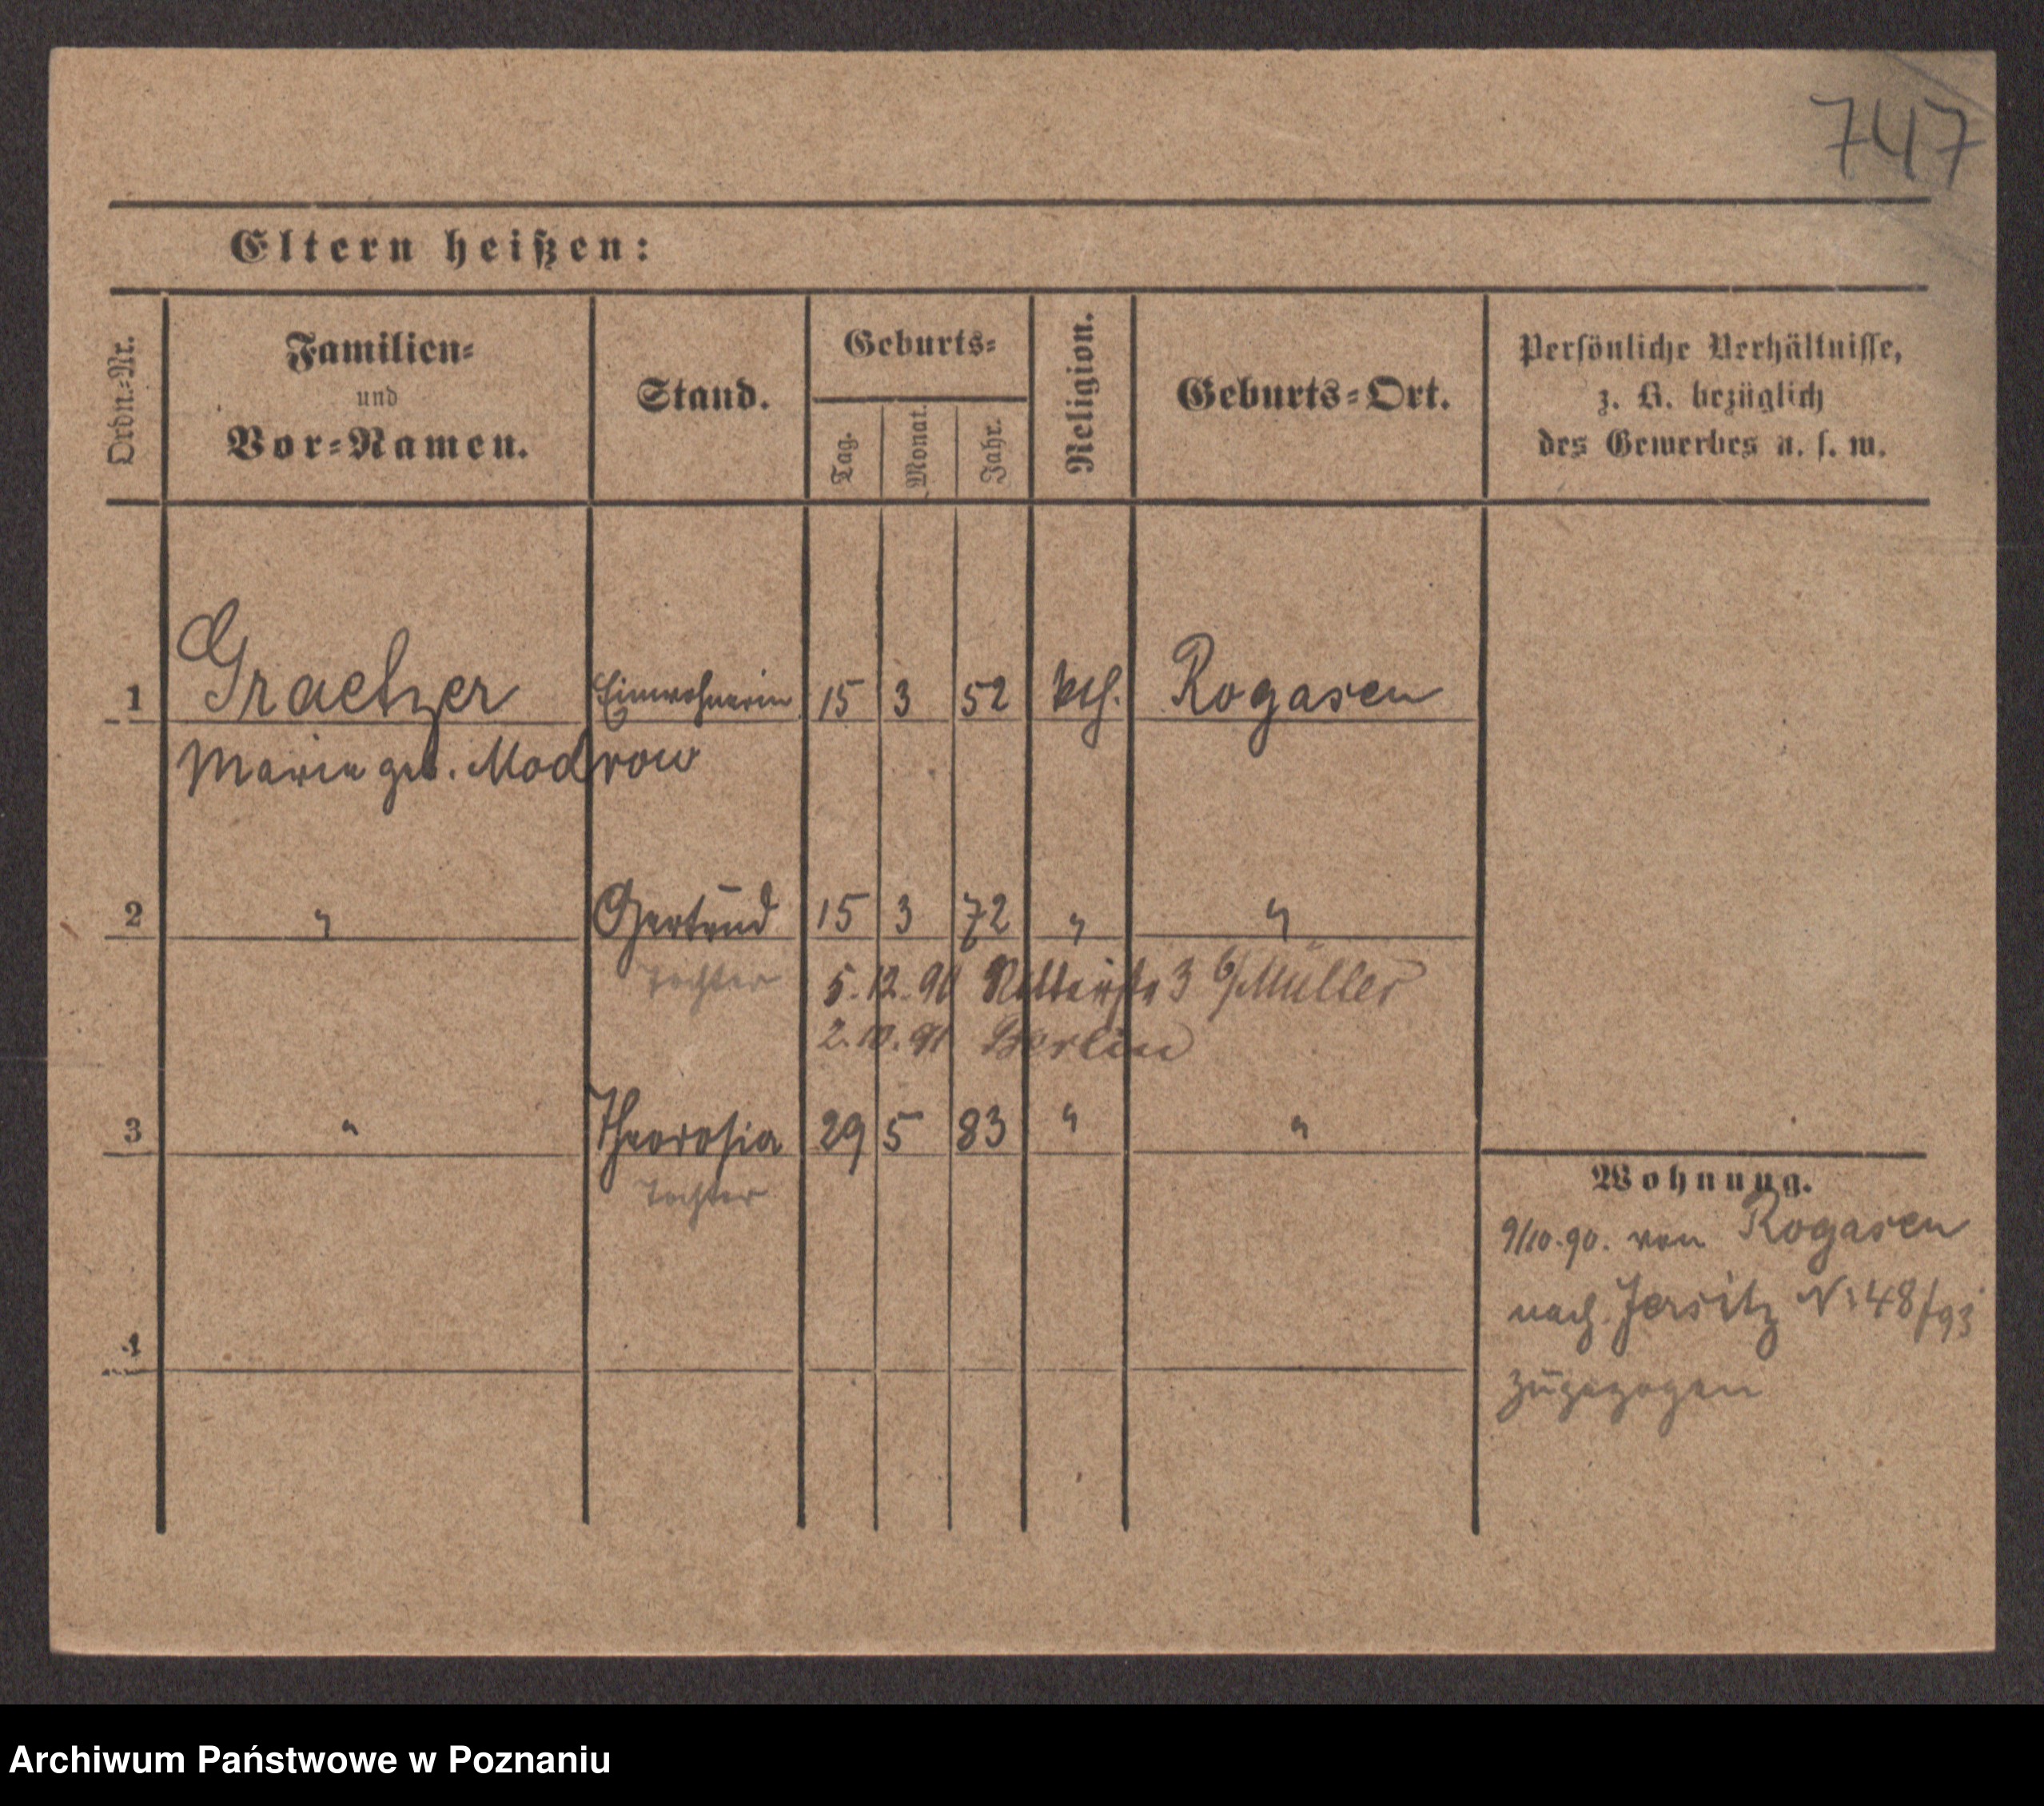 747
Eltern heißen:
Ordn.-Nr.
Familien-
und
Vor-Namen.
Stand.
Geburts-
Tag.
Monat.
Jahr.
Religion.
Geburts-Ort.
Persönliche Verhältnisse,
z. B. bezüglich
des Gewerbes u. s. w.
1 Graetzer Einwohnerin 15 3 52 kth. Rogasen
Marie geb. Modrow
2 " Gertrud 15 3 72 " "
Tochter 5.12.91 Ritterstr 3 b/Müller
2.10.91 Berlin
3 " 29 5 83 " "
Tochter
Wohnung.
9/10.90. von Rogasen
nach Jersitz No 48/93
zugezogen
4
Archiwum Państwowe w Poznaniu